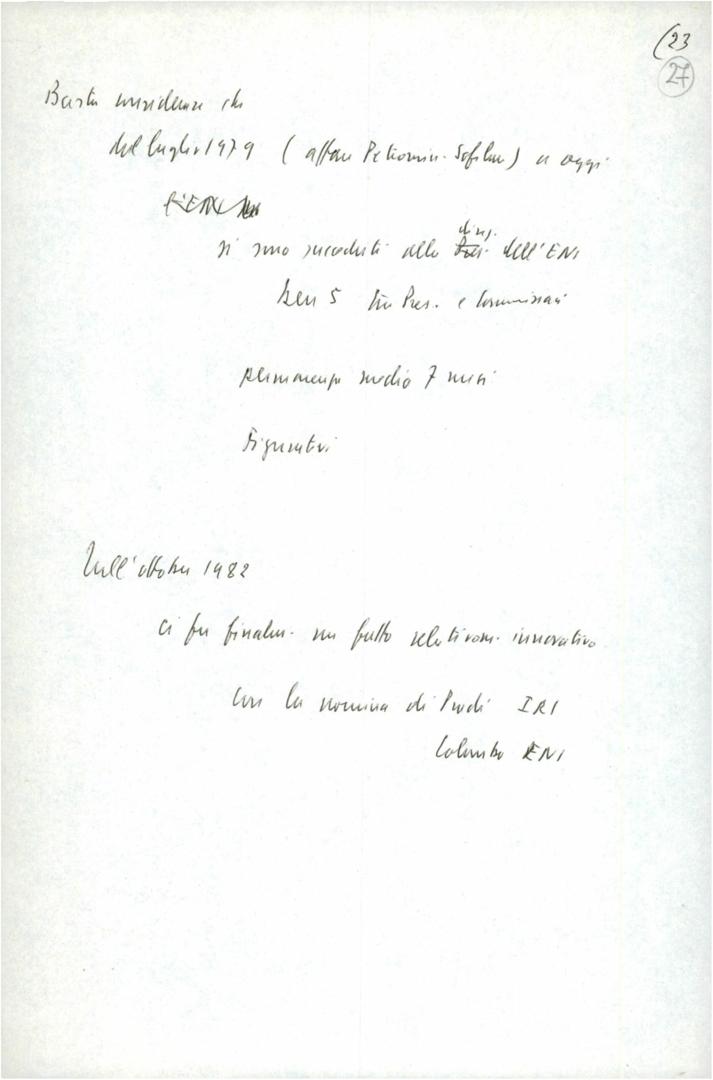 (23
27
Basta considerare che
dal luglio 1979 (affare Petromin-Sofilau) a oggi
si sono succeduti alla dirig. dell'ENI
ben 5 tra Pres. e Commissari
permanenza media 7 mesi
Figuratevi
Nell'ottobre 1982
ci fu finalm. un fatto relativam. innovativo
con la nomina di Prodi IRI
Colombo ENI